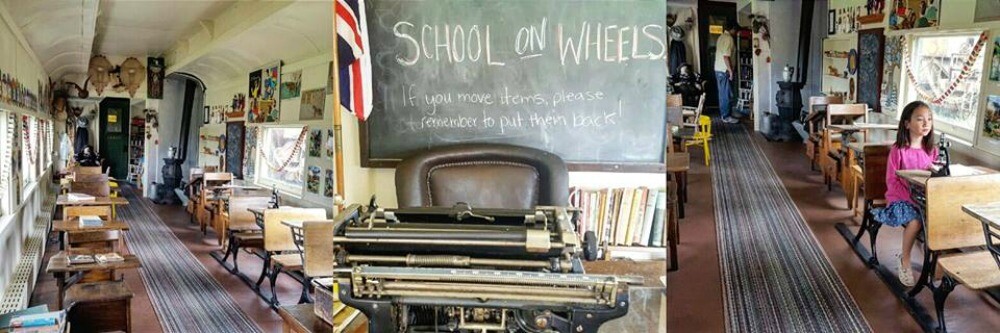 SCHOOL ON WHEELS
If you move items, please
remember to put them back!